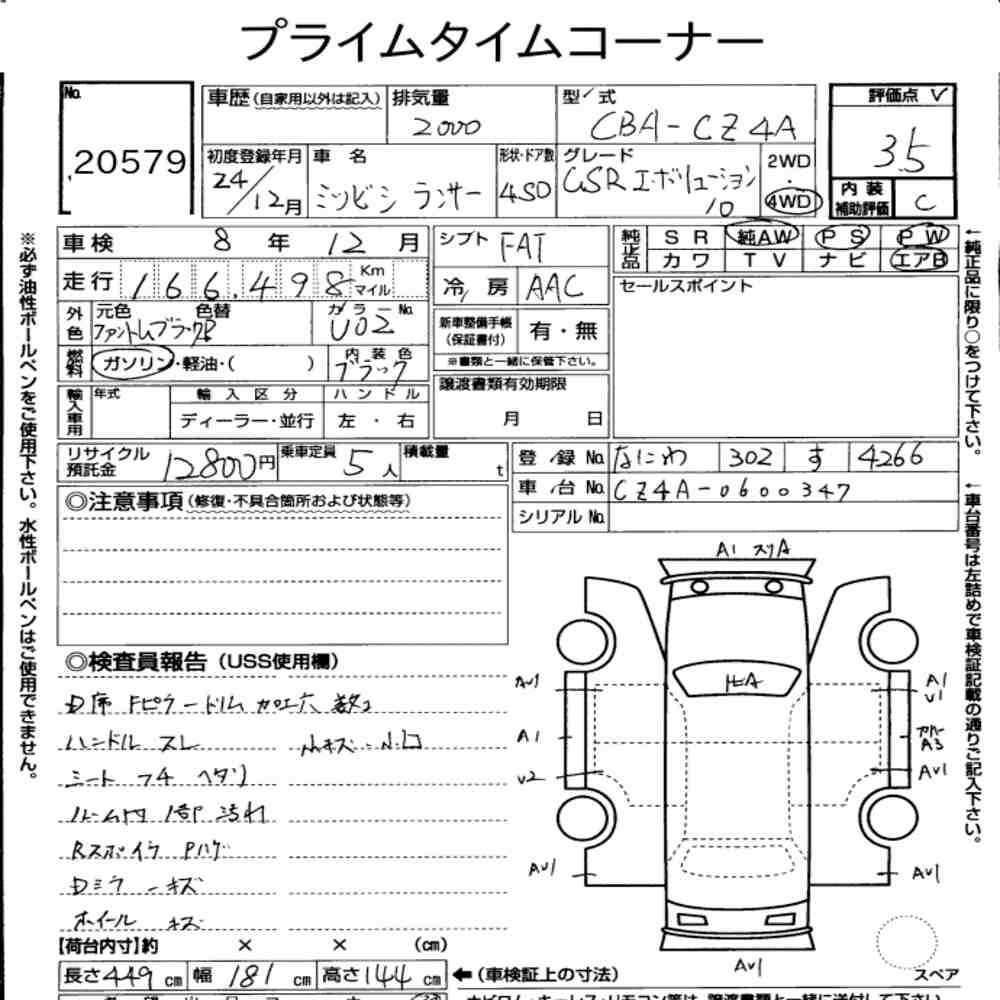 プライムタイムコーナー
No. 20579
車歴(自家用以外は記入) 排気量 2000
型/式 CBA-CZ4A
評価点 3.5
初度登録年月 24/12月
車名 ミツビシ ランサー
形状・ドア数 4SD
グレード GSR エボリューション 10
2WD・4WD
内装補助評価 C
車検 8年12月
シフト FAT
純正品 SR 純AW PS PW
カワ TV ナビ エアB
走行 166,498 Km マイル
冷房 AAC
セールスポイント
外色 元色 ファントムブラックP 色替 カラーNo. U02
新車整備手帳(保証書付) 有・無
※書類と一緒に保管下さい。
燃料 ガソリン・軽油・( )
内装色 ブラック
譲渡書類有効期限 月 日
輸入車用 年式 輸入区分 ハンドル
ディーラー・並行 左・右
リサイクル預託金 12800円 乗車定員 5人 積載量 t
登録No. なにわ 302 す 4266
車台No. CZ4A-0600347
シリアルNo.
◎注意事項(修復・不具合箇所および状態等)
◎検査員報告(USS使用欄)
D席 Fピラートリム 加工穴 数コ
ハンドル スレ 小キズ・小凹
シート コゲ ヘタリ
ルーム内 1部 汚れ
Rスポイラ Pハゲ
Dミラーキズ
ホイール キズ
A1 スリA
トビA
AU1
A1
U2
AU1
A1
U1
カバー
A3
AU1
AU1
AU1
スペア
【荷台内寸】約 × × (cm)
長さ449cm 幅181cm 高さ144cm ←(車検証上の寸法)
※必ず油性ボールペンをご使用下さい。水性ボールペンはご使用できません。
←純正品に限り○をつけて下さい。
←車台番号は左詰めで車検証記載の通りご記入下さい。